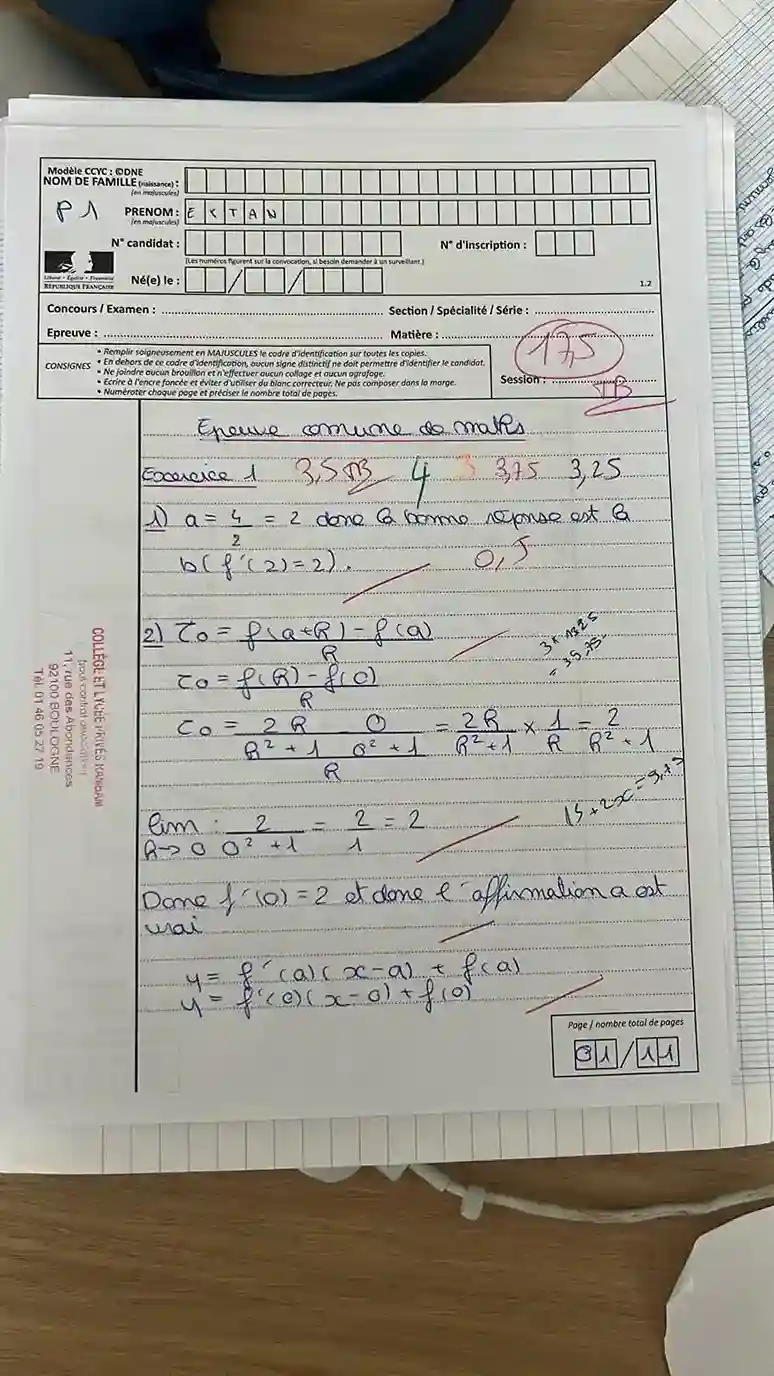 Modèle CCYC : ©DNE
NOM DE FAMILLE (naissance) :
(en majuscules)
P 1
PRENOM :
(en majuscules)
E I T A N
N° candidat :
N° d'inscription :
(Les numéros figurent sur la convocation, si besoin demander à un surveillant.)
Liberté • Égalité • Fraternité
RÉPUBLIQUE FRANÇAISE
Né(e) le : / /
1.2
Concours / Examen :
Section / Spécialité / Série :
Epreuve :
Matière :
17,5
CONSIGNES
• Remplir soigneusement en MAJUSCULES le cadre d'identification sur toutes les copies.
• En dehors de ce cadre d'identification, aucun signe distinctif ne doit permettre d'identifier le candidat.
• Ne joindre aucun brouillon et n'effectuer aucun collage et aucun agrafage.
• Ecrire à l'encre foncée et éviter d'utiliser du blanc correcteur. Ne pas composer dans la marge.
• Numéroter chaque page et préciser le nombre total de pages.
Session :
TB
Epreuve comune de maths
Excercice 1 3,5 TB 4 3 3,75 3,25
1) a = 4/2 = 2 donc la bonne réponse est la
b (f'(2) = 2).
0,5
2) τ0 = f(a+h) - f(a) / h
τ0 = f(h) - f(0) / h
τ0 = 2h/h²+1 0/0²+1 / h = 2h/h²+1 × 1/h = 2/h²+1
lim : 2/0²+1 = 2/1 = 2
h→0
Donc f'(0) = 2 et donc l'affirmation a est
vrai
y = f'(a)(x-a) + f(a)
y = f'(0)(x-0) + f(0)
Page / nombre total de pages
01/11
COLLÈGE ET LYCÉE PRIVÉS
11, rue des Abondances
92100 BOULOGNE
Tél. 01 46 05 27 19